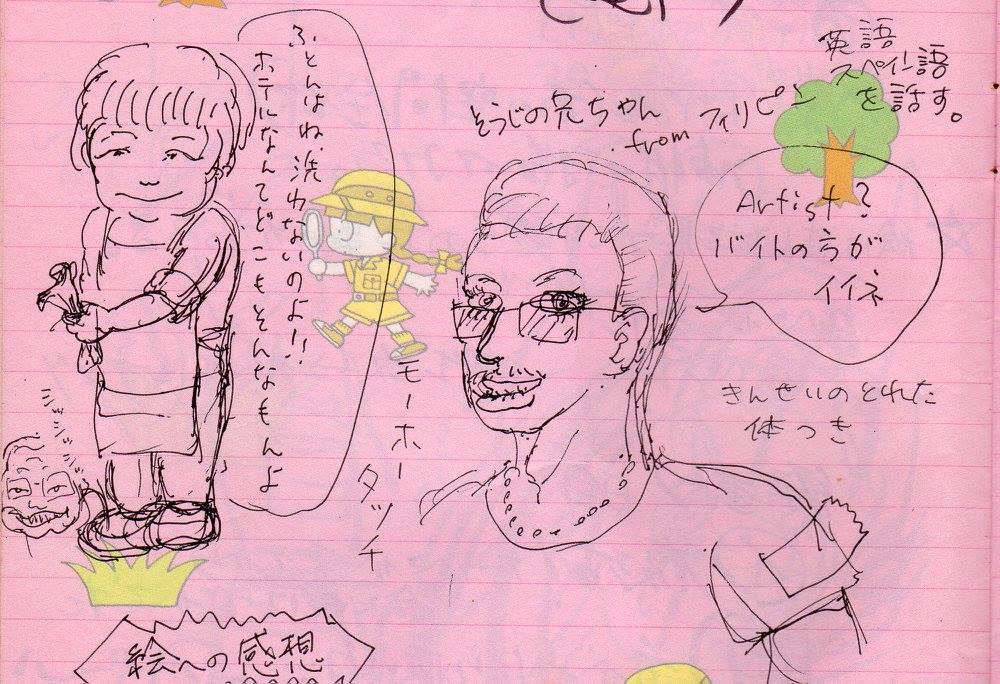 英語
スペイン語
を話す。
そうじの兄ちゃん
from フィリピン
Artist?
バイトの方が
イイネ
きんせいのとれた
体つき
ふとんはね、洗わないのよ!!
ホテルなんてどこもそんなもんよ
モーホー
タッチ
絵への感想